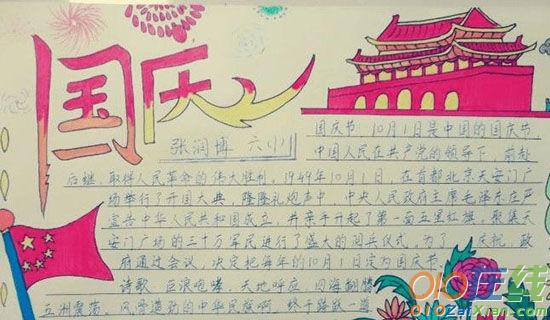 国庆
张润博 六(1)
国庆节 10月1日是中国的国庆节,
中国人民在共产党的领导下,前赴
后继,取得人民革命的伟大胜利,1949年10月1日,在首都北京天安门广
场举行了开国大典,隆隆礼炮声中,中央人民政府主席毛泽东庄严
宣告中华人民共和国成立,并亲手升起了第一面五星红旗,聚集天
安门广场的三十万军民进行了盛大的阅兵仪式,为了 庆祝,政
府通过会议,决定把每年的10月1日定为国庆节。
诗歌:巨浪咆哮,天地呼应,四海翻腾
五洲震荡,风雷激励的中华民族啊 终于踏
在线
ZaiXian.com